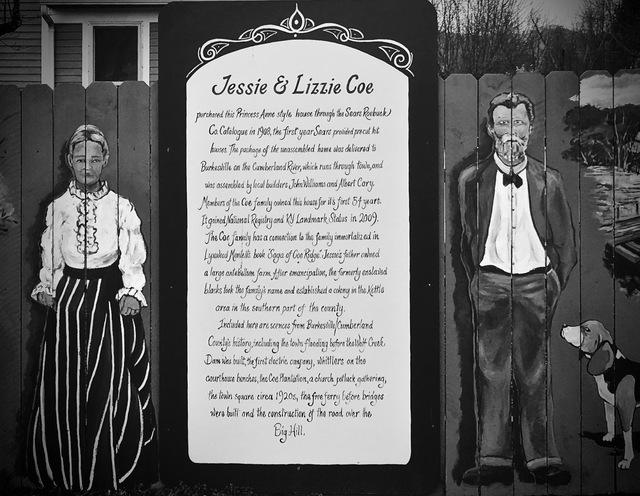 Jessie & Lizzie Coe
purchased this Princess Anne style house through the Sears Roebuck
Co. Catalogue in 1908, the first year Sears provided precut kit
houses. The package of the unassembled home was delivered to
Burkesville on the Cumberland River, which runs through town, and
was assembled by local builders, John Williams and Albert Cary.
Members of the Coe family owned this house for its first 54 years.
It gained National Registry and KY Landmark Status in 2009.
The Coe family has a connection to the family immortalized in
Lynwood Montell's book "Saga of Coe Ridge". Jessie's father owned
a large antebellum farm. After emancipation, the formerly enslaved
blacks took the family's name and established a colony in the Kettle
area in the southern part of the county.
Included here are scences from Burkesville/Cumberland
County's history, including the town flooding before the Wolf Creek
Dam was built, the first electric company, whittlers on the
courthouse benches, the Coe Plantation, a church potluck gathering,
the town square circa 1920s, the free ferry before bridges
were built and the construction of the road over the
Big Hill.